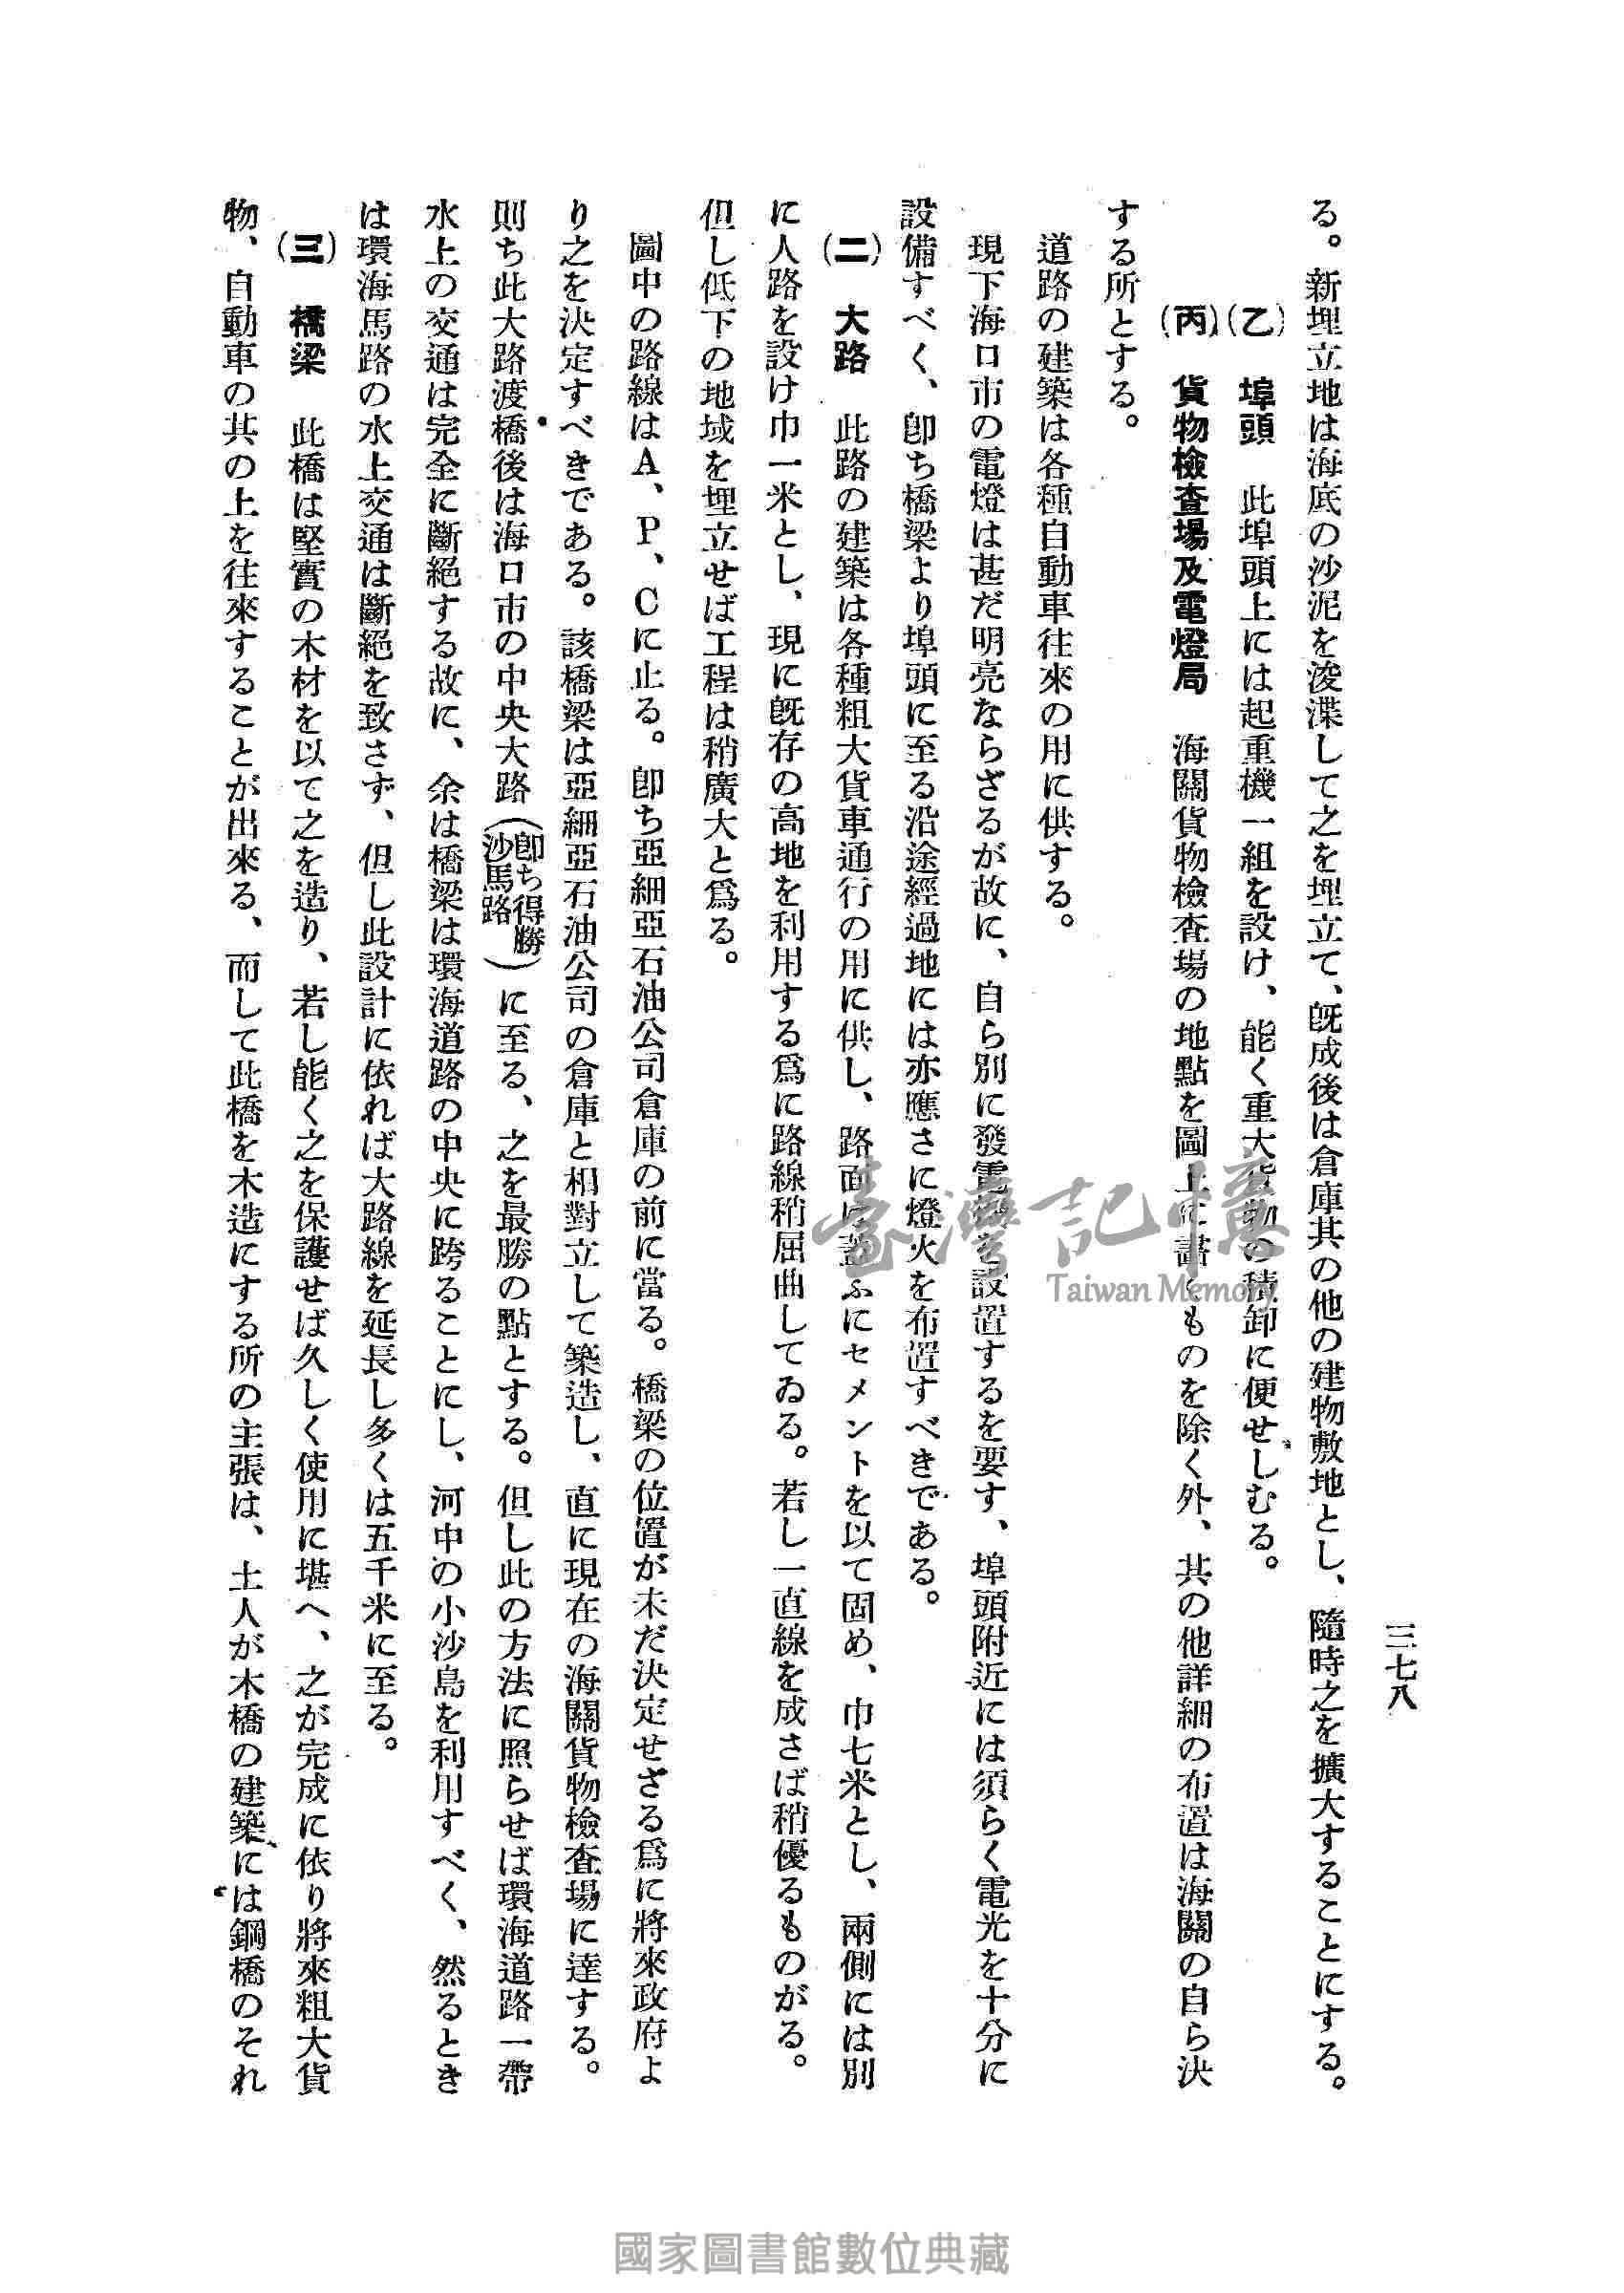 三七八
る。新埋立地は海底の沙泥を浚渫して之を埋立て、既成後は倉庫其の他の建物敷地とし、隨時之を擴大することにする。
(乙) 埠頭 此埠頭上には起重機一組を設け、能く重大貨物の積卸に便せしむる。
(丙) 貨物檢査場及電燈局 海關貨物檢査場の地點を圖上に畫くものを除く外、其の他詳細の布置は海關の自ら決
する所とする。
道路の建築は各種自動車往來の用に供する。
現下海口市の電燈は甚だ明亮ならざるが故に、自ら別に發電機を設置するを要す、埠頭附近には須らく電光を十分に
設備すべく、卽ち橋梁より埠頭に至る沿途經過地には亦應さに燈火を布置すべきである。
(二) 大路 此路の建築は各種粗大貨車通行の用に供し、路面は蓋ふにセメントを以て固め、巾七米とし、兩側には別
に人路を設け巾一米とし、現に旣存の高地を利用する爲に路線稍屈曲してゐる。若し一直線を成さば稍優るものがる。
但し低下の地域を埋立せば工程は稍廣大と爲る。
圖中の路線はA、P、Cに止る。卽ち亞細亞石油公司倉庫の前に當る。橋梁の位置が未だ決定せざる爲に將來政府よ
り之を決定すべきである。該橋梁は亞細亞石油公司の倉庫と相對立して築造し、直に現在の海關貨物檢査場に達する。
則ち此大路渡橋後は海口市の中央大路(卽ち得勝沙馬路)に至る、之を最勝の點とする。但し此の方法に照らせば環海道路一帶
水上の交通は完全に斷絕する故に、余は橋梁は環海道路の中央に跨ることにし、河中の小沙島を利用すべく、然るとき
は環海馬路の水上交通は斷絕を致さず、但し此設計に依れば大路線を延長し多くは五千米に至る。
(三) 橋梁 此橋は堅實の木材を以て之を造り、若し能く之を保護せば久しく使用に堪へ、之が完成に依り將來粗大貨
物、自動車の其の上を往來することが出來る、而して此橋を木造にする所の主張は、土人が木橋の建築には鋼橋のそれ
臺灣記憶
Taiwan Memory
國家圖書館數位典藏